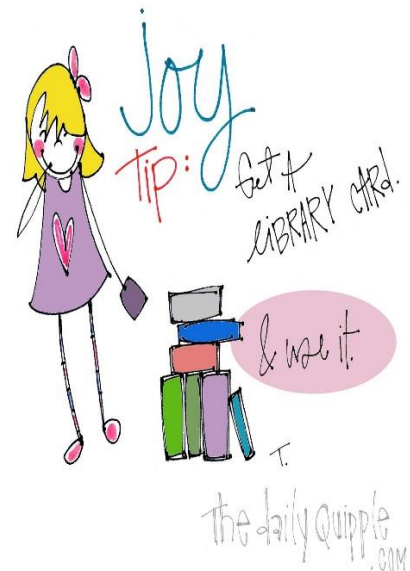 Joy
Tip:
Get A
LIBRARY CARd.
& use it.
T.
The daily Quipple
.COM